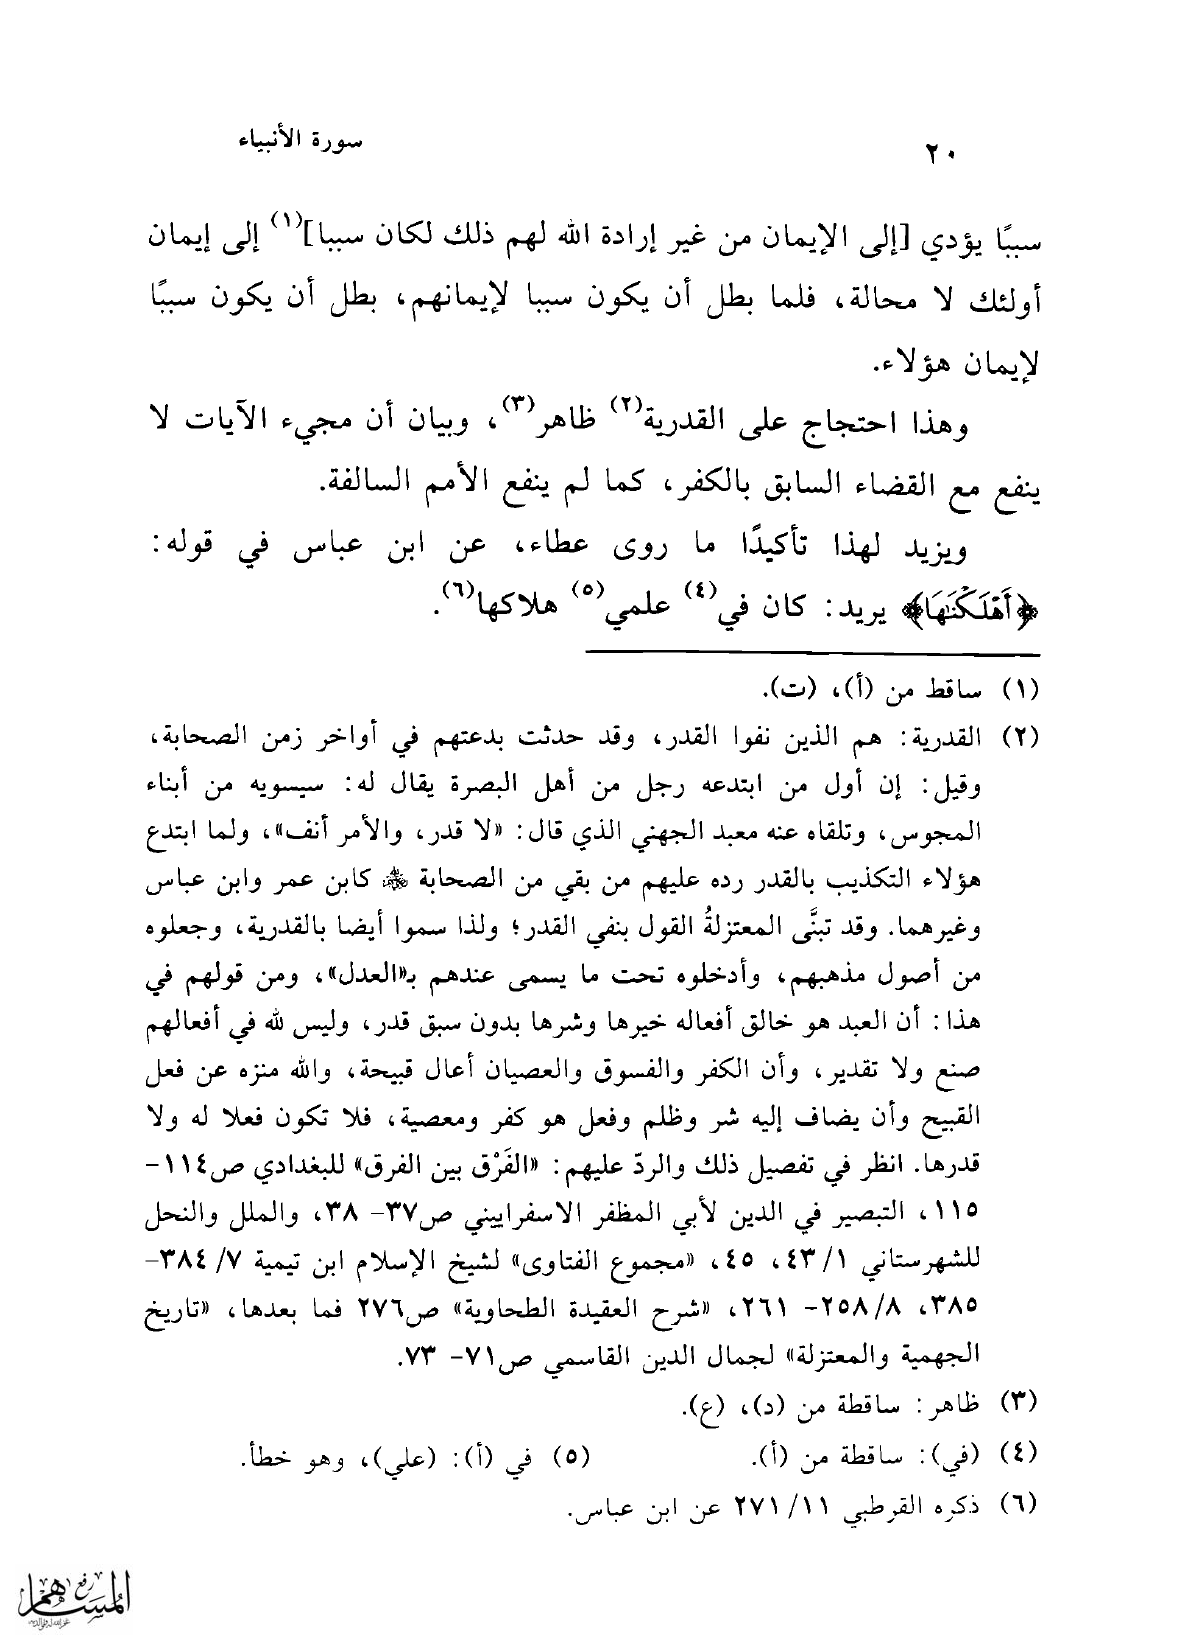 ٢٠ سورة الأنبياء
سببًا يؤدي [إلى الإيمان من غير إرادة الله لهم ذلك لكان سببا](١) إلى إيمان
أولئك لا محالة، فلما بطل أن يكون سببا لإيمانهم، بطل أن يكون سببًا
لإيمان هؤلاء.
وهذا احتجاج على القدرية(٢) ظاهر(٣)، وبيان أن مجيء الآيات لا
ينفع مع القضاء السابق بالكفر، كما لم ينفع الأمم السالفة.
ويزيد لهذا تأكيدًا ما روى عطاء، عن ابن عباس في قوله:
﴿أَهْلَكْنَاهَا﴾ يريد: كان في(٤) علمي(٥) هلاكها(٦).
(١) ساقط من (أ)، (ت).
(٢) القدرية: هم الذين نفوا القدر، وقد حدثت بدعتهم في أواخر زمن الصحابة،
وقيل: إن أول من ابتدعه رجل من أهل البصرة يقال له: سيسويه من أبناء
المجوس، وتلقاه عنه معبد الجهني الذي قال: «لا قدر، والأمر أنف»، ولما ابتدع
هؤلاء التكذيب بالقدر رده عليهم من بقي من الصحابة ﷺ كابن عمر وابن عباس
وغيرهما. وقد تبنَّى المعتزلةُ القول بنفي القدر؛ ولذا سموا أيضا بالقدرية، وجعلوه
من أصول مذهبهم، وأدخلوه تحت ما يسمى عندهم بـ«العدل»، ومن قولهم في
هذا: أن العبد هو خالق أفعاله خيرها وشرها بدون سبق قدر، وليس لله في أفعالهم
صنع ولا تقدير، وأن الكفر والفسوق والعصيان أعال قبيحة، والله منزه عن فعل
القبيح وأن يضاف إليه شر وظلم وفعل هو كفر ومعصية، فلا تكون فعلا له ولا
قدرها. انظر في تفصيل ذلك والردّ عليهم: «الفَرْق بين الفرق» للبغدادي ص١١٤-
١١٥، التبصير في الدين لأبي المظفر الاسفراييني ص٣٧- ٣٨، والملل والنحل
للشهرستاني ١/ ٤٣، ٤٥، «مجموع الفتاوى» لشيخ الإسلام ابن تيمية ٧/ ٣٨٤-
٣٨٥، ٨/ ٢٥٨- ٢٦١، «شرح العقيدة الطحاوية» ص٢٧٦ فما بعدها، «تاريخ
الجهمية والمعتزلة» لجمال الدين القاسمي ص٧١- ٧٣.
(٣) ظاهر: ساقطة من (د)، (ع).
(٤) (في): ساقطة من (أ). (٥) في (أ): (علي)، وهو خطأ.
(٦) ذكره القرطبي ١١/ ٢٧١ عن ابن عباس.